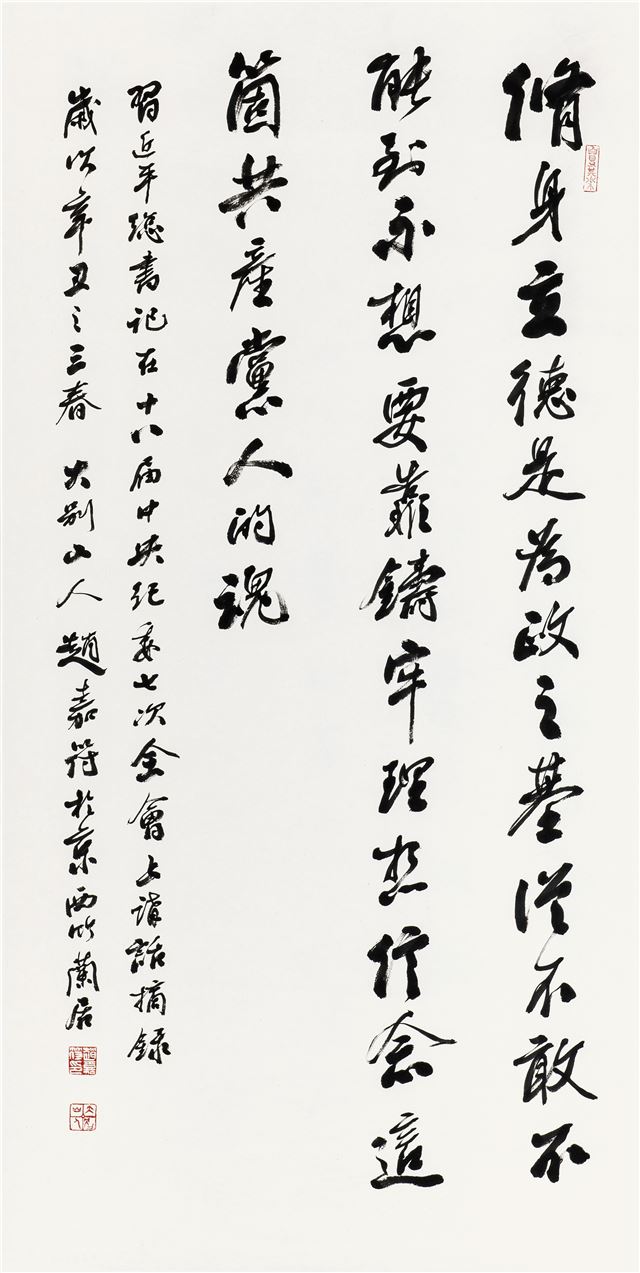 脩身立德是為政之基從不敢不
能到不想要靠鑄牢理想信念這
箇共產黨人的魂
習近平總書記在十八屆中央紀委七次全會上講話摘錄
歲次辛丑之三春 大別山人趙嘉符於京西蘭居
趙嘉符印
大別山人